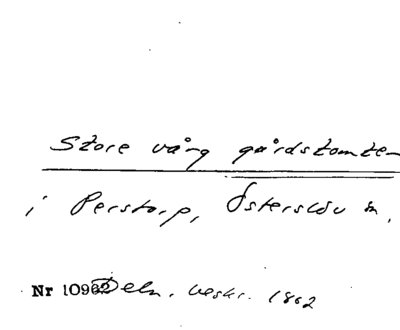 Store vång gårdstomten
i Perstorp, Österslöv sn.
Nr 10962 Deln. beskr. 1862